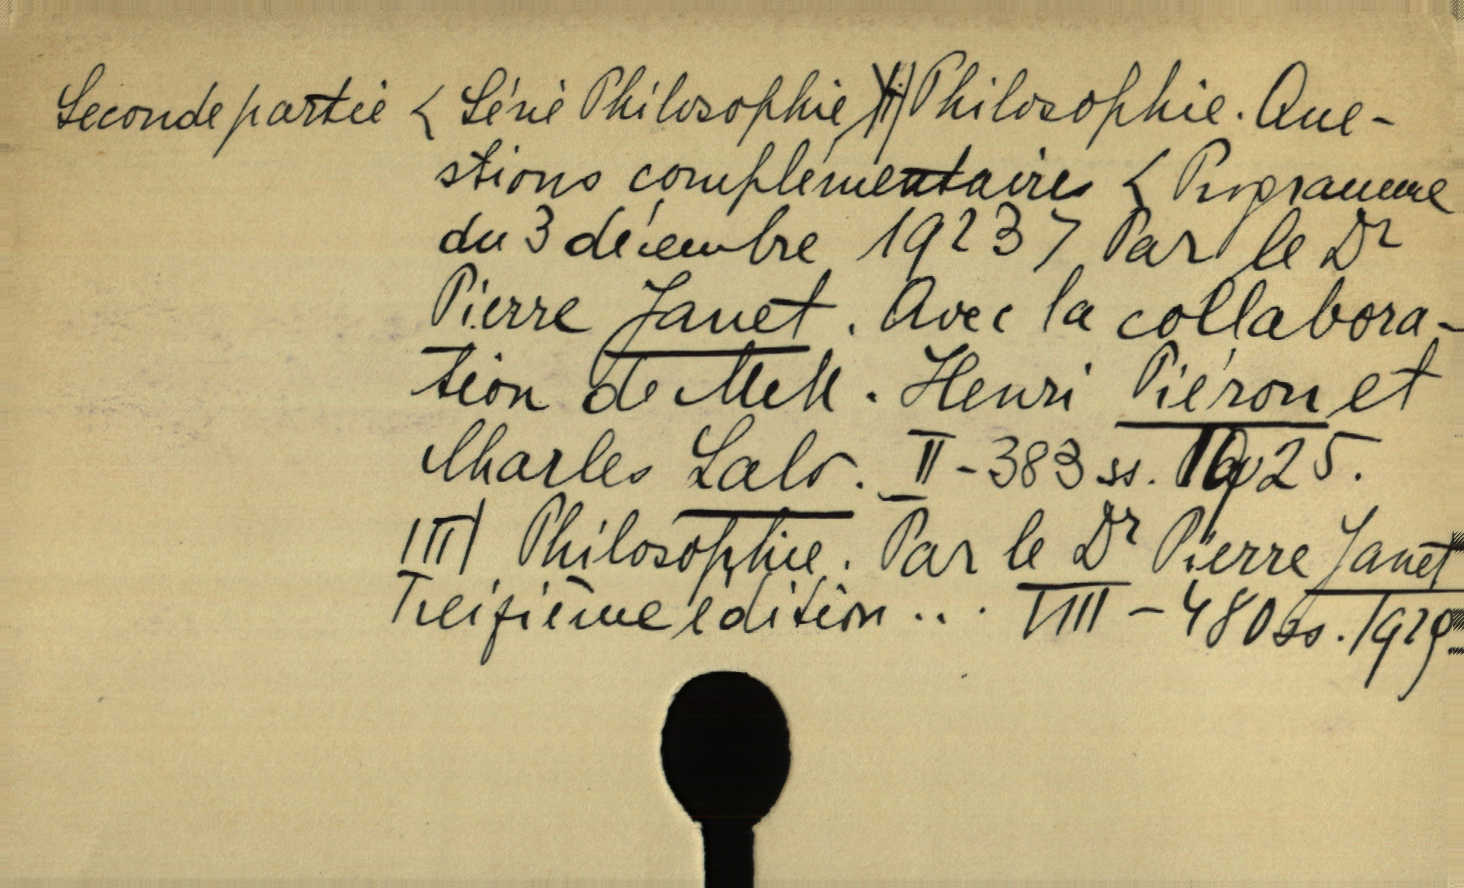 Seconde partie < Série Philosophie > II) Philosophie. Que-
stions complémentaires < Programme
du 3 décembre 1923 > Par le Dr
Pierre Janet. Avec la collabora-
tion de MM. Henri Piéron et
Charles Lalo. II - 383 ss. 1925.
III) Philosophie. Par le Dr Pierre Janet
Treizième édition ... VIII - 480 ss. 1929